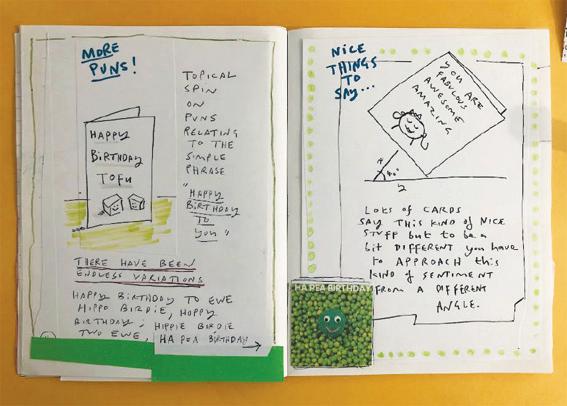 MORE
PUNS!
TOPICAL
SPIN
ON
PUNS
RELATING
TO THE
SIMPLE
PHRASE
"HAPPY
BIRTHDAY
TO
YOU"
HAPPY
BIRTHDAY
TOFU
THERE HAVE BEEN
ENDLESS VARIATIONS
HAPPY BIRTHDAY TO EWE
HIPPO BIRDIE, HOPPY
BIRTHDAY; HIPPIE BIRDIE
TWO EWE, HA PEA BIRTHDAY
NICE
THINGS
TO
SAY...
YOU ARE
FABULOUS
AWESOME
AMAZING
LOTS OF CARDS
SAY THIS KIND OF NICE
STUFF but to be a
bit DIFFERENT you HAVE
to APPROACH this
KIND of SENTIMENT
FROM A DIFFERENT
ANGLE.
HA PEA BIRTHDAY